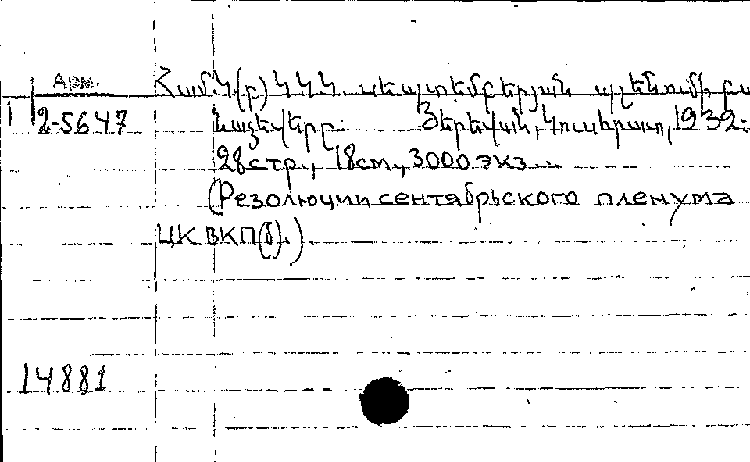 Арм.
ՀամԿ(բ)ԿԿԿ սեպտեմբերյան պլենումի բա
1 2-5647 նաձեվերը. Յերեվան, Կուսհրատ, 1932:
28 стр., 18 см, 3000 экз.
(Резолюции сентябрьского пленума
ЦК ВКП(б).)
14881